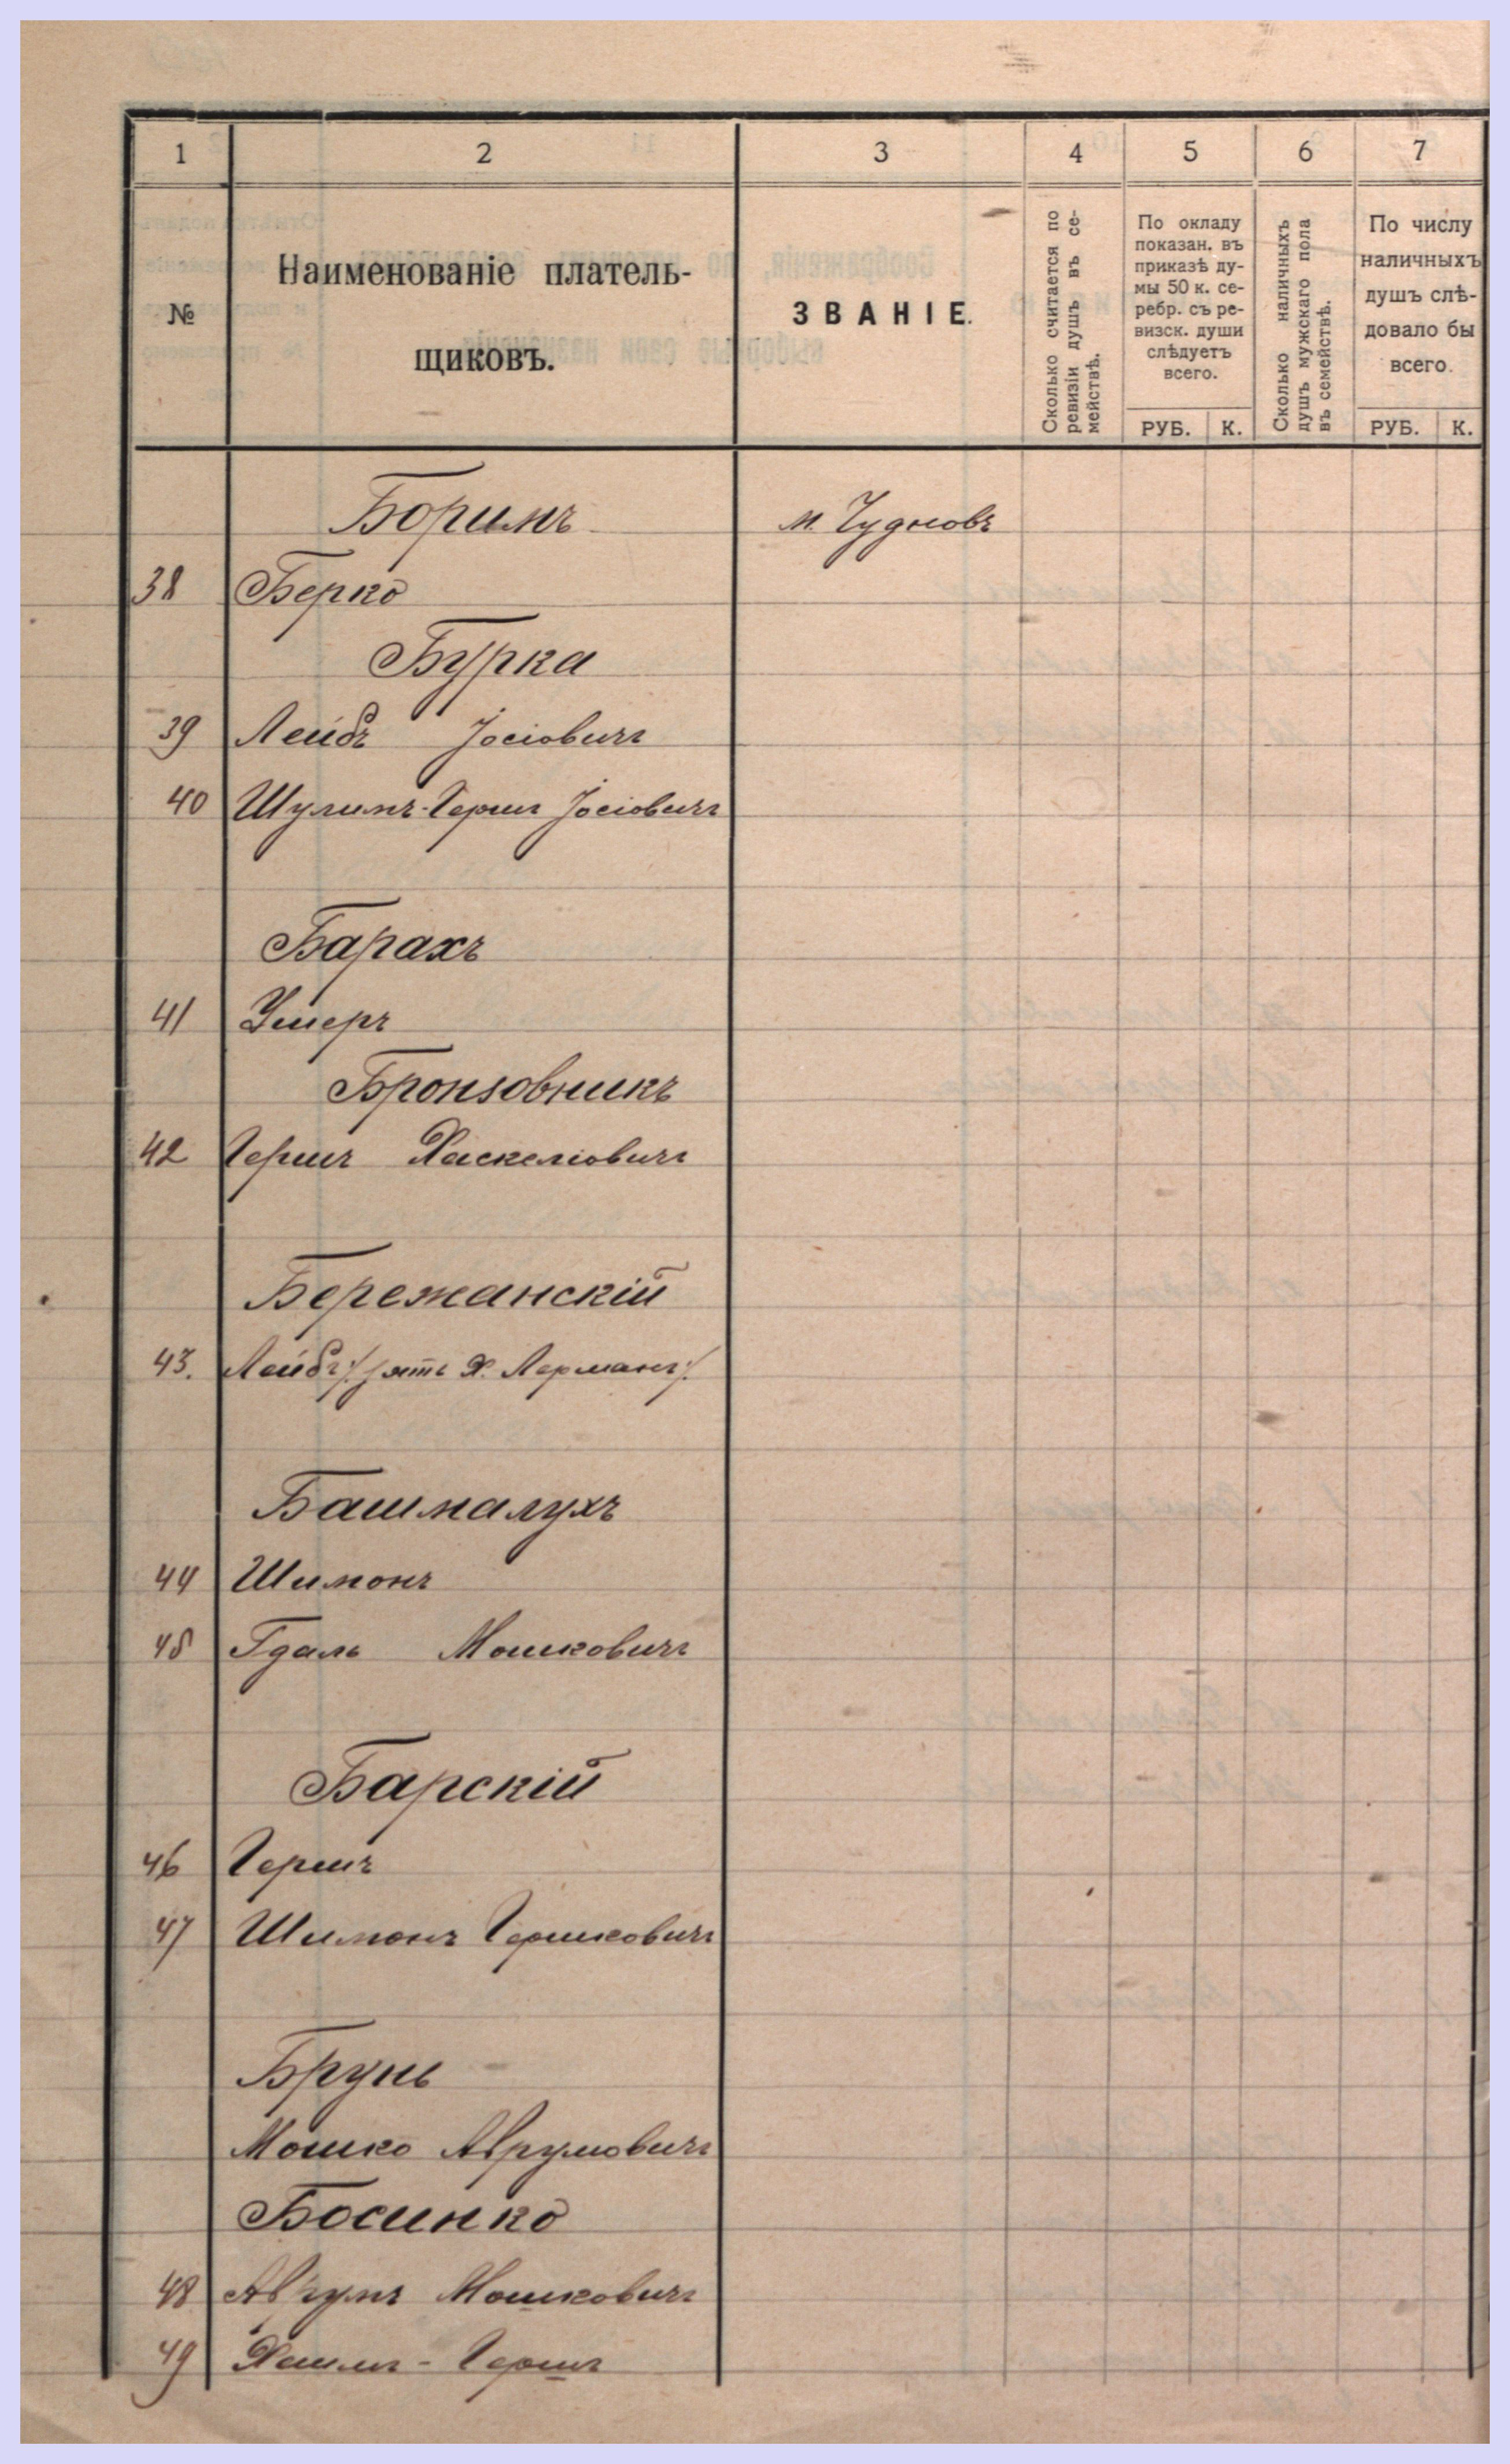 1 2 3 4 5 6 7
№
Наименованіе платель-
щиковъ.
ЗВАНІЕ.
Сколько считается по
ревизіи душъ въ се-
мействѣ.
По окладу
показан. въ
приказѣ ду-
мы 50 к. се-
ребр. съ ре-
визск. души
слѣдуетъ
всего.
РУБ. К.
Сколько наличныхъ
душъ мужскаго пола
въ семействѣ.
По числу
наличныхъ
душъ слѣ-
довало бы
всего.
РУБ. К.
Боримъ м. Чудновъ
38 Берко
Бурка
39 Лейбъ Іосіовичъ
40 Шулимъ-Гершъ Іосіовичъ
Барахъ
41 Ушеръ
Бронзовникъ
42 Гершъ Хаскеліовичъ
Бережанскій
43. Лейбъ /:зять Х. Лерманъ:/
Башмалухъ
44 Шимонъ
45 Гдаль Мошковичъ
Барскій
46 Гершъ
47 Шимонъ Гершковичъ
Брунь
Мошко Аврумовичъ
Босинко
48 Аврумъ Мошковичъ
49 Хаимъ-Гершъ